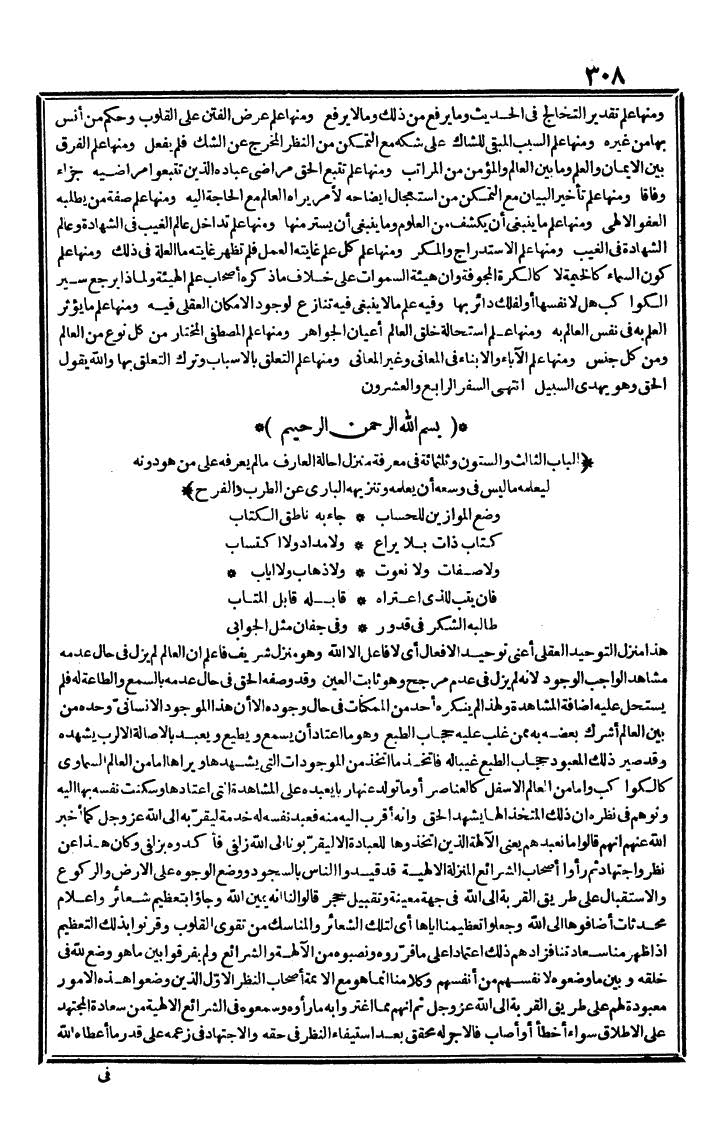 ٣٠٨
ومنها علم تقدير التخالج فى الحديث وما يرفع من ذلك وما لا يرفع ومنها علم عرض الفتن على القلوب وحكم من أنس
بها من غيره ومنها علم السبب المبقى للشاك على شكه مع التمكن من النظر المخرج عن الشك فلم يفعل ومنها علم الفرق
بين الايمان والعلم وما بين العالم والمؤمن من المراتب ومنها علم تتبع الحق مراضى عباده الذين تتبعوا مراضيه جزاء
وفاقا ومنها علم تأخير البيان مع التمكن من استعجال ايضاحه لأمر يراه العالم مع الحاجة اليه ومنها علم صفة من يطلبه
العفو الالهى ومنها علم ما ينبغى أن يكشف من العلوم وما ينبغى أن يستر منها ومنها علم تداخل عالم الغيب فى الشهادة وعالم
الشهادة فى الغيب ومنها علم الاستدراج والمكر ومنها علم كل علم غايته العمل فلم تظهر غايته ما العلة فى ذلك ومنها علم
كون السماء كالخيمة لا كالكرة المجوفة وان هيئة السموات على خلاف ما ذكره أصحاب علم الهيئة ولماذا يرجع سير
الكواكب هل لا نفسها أو لفلك دائر بها وفيه علم ما لا ينبغى فيه تنازع لوجود الامكان العقلى فيه ومنها علم ما يؤثر
العلم به فى نفس العالم به ومنها علم استحالة خلق العالم أعيان الجواهر ومنها علم المصطفى المختار من كل نوع من العالم
ومن كل جنس ومنها علم الآباء والابناء فى المعانى وغير المعانى ومنها علم التعلق بالاسباب وترك التعلق بها والله يقول
الحق وهو يهدى السبيل انتهى السفر الرابع والعشرون
*( بسم الله الرحمن الرحيم )*
*(الباب الثالث والستون وثلثمائة فى معرفة منزل احالة العارف مالم يعرفه على من هو دونه
ليعلمه ماليس فى وسعه أن يعلمه وتنزيهه البارى عن الطرب والفرح)*
وضع الموازين للحساب * جاء به ناطق الكتاب
كتاب ذات بلا يراع * ولا مداد ولا اكتساب
ولا صفات ولا نعوت * ولا ذهاب ولا اياب *
فان يتب للذى اعتراه * قابله قابل المتاب
طالبه الشكر فى قدور * وفى جفان مثل الجوابى
هذا منزل التوحيد العقلى أعنى توحيد الافعال أى لا فاعل الا الله وهو منزل شريف فاعلم ان العالم لم يزل فى حال عدمه
مشاهدا لواجب الوجود لانه لم يزل فى عدم مرجح وهو ثابت العين وقد وصفه الحق فى حال عدمه بالسمع والطاعة له فلم
يستحل عليه اضافة المشاهدة ولهذا لم ينكره أحد من الممكنات فى حال وجوده الا أن هذا الموجود الانسانىّ وحده من
بين العالم أشرك بعضه به ممن غلب عليه حجاب الطبع وهو ما اعتاد أن يسمع ويطيع ويعبد بالاصالة الا لرب يشهده
وقد صير ذلك المعبود حجاب الطبع غيبا له فاتخذ ما اتخذ من الموجودات التى يشهدها ويراها اما من العالم السماوى
كالكواكب واما من العالم الاسفل كالعناصر أو ما تولد عنها ربا يعبده على المشاهدة التى اعتادها وسكنت نفسه بها اليه
وتوهم فى نظره ان ذلك المتخذ الها يشهد الحق وانه أقرب اليه منه فعبد نفسه له خدمة ليقرّ به الى الله عز وجل كما أخبر
الله عنهم انهم قالوا ما نعبدهم يعنى الآلهة الذين اتخذوها للعبادة الا ليقرّبونا الى الله زلفى فأكدوه بزلفى وكان هذا عن
نظر واجتهاد ثم رأوا أصحاب الشرائع المنزلة الالهية قد قيدوا الناس بالسجود ووضع الوجوه على الارض والركوع
والاستقبال على طريق القربة الى الله فى جهة معينة وتقبيل حجر قالوا لنا انه يمين الله وجاؤا بتعظيم شعائر واعلام
محدثات أضافوها الى الله وجعلوا تعظيمنا اياها أى لتلك الشعائر والمناسك من تقوى القلوب وقرنوا بذلك التعظيم
اذا ظهر منا سعادتنا فزادهم ذلك اعتمادا على ما قرّروه ونصبوه من الآلهة والشرائع ولم يفرقوا بين ما هو وضع لله فى
خلقه وبين ما وضعوه لا نفسهم من أنفسهم وكلامنا انما هو مع الائمة أصحاب النظر الاوّل الذين وضعوا هذه الامور
معبودة لهم على طريق القربة الى الله عز وجل ثم انهم مما اغتروا به ما رأوه وسمعوه فى الشرائع الالهية من سعادة المجتهد
على الاطلاق سواء أخطأ أو أصاب فالاجر له محقق بعد استيفاء النظر فى حقه والاجتهاد فى زعمه على قدر ما أعطاه الله
فى